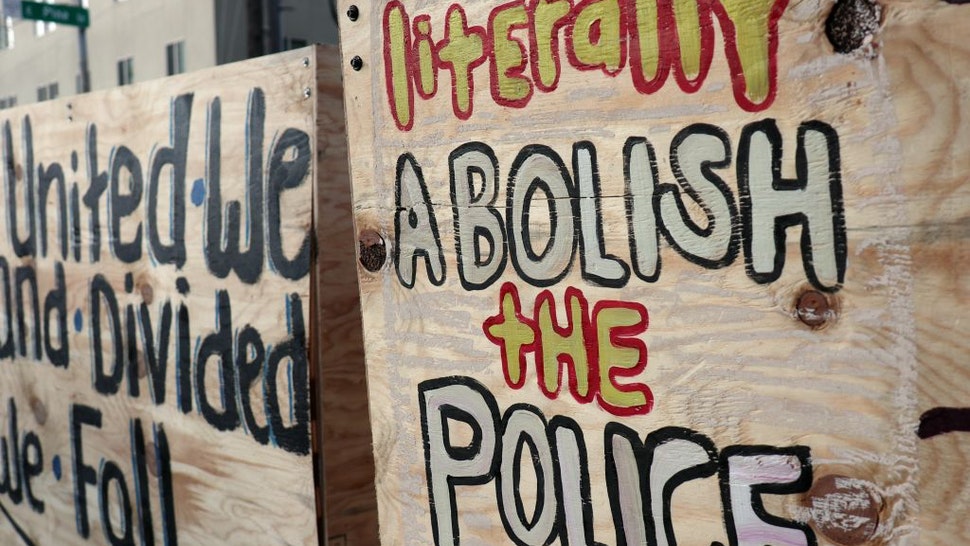 E Pine St
United·We
and·Divided
we·Fall
literally
ABOLISH
tHE
POLICE